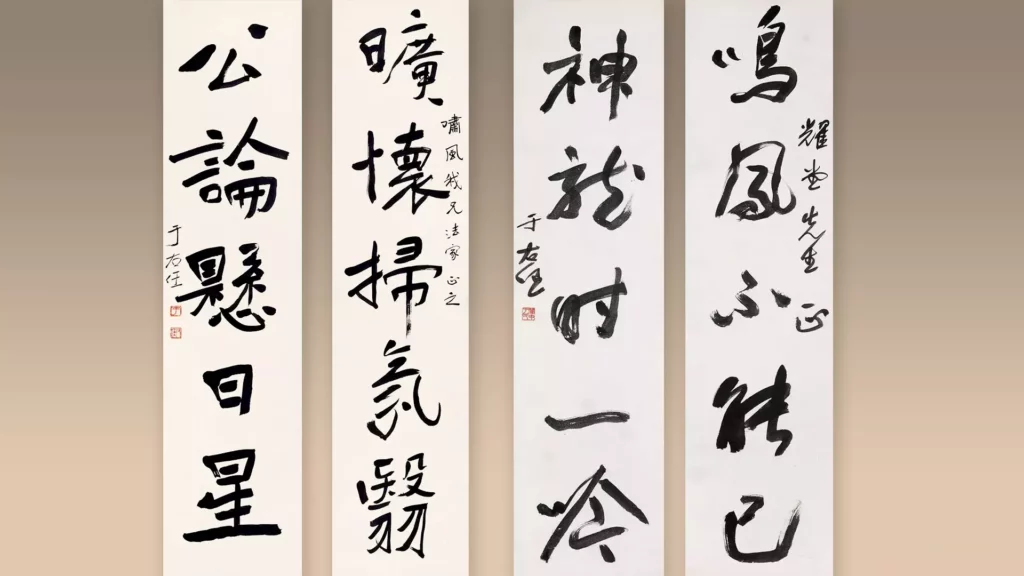 鳴鳳不能已
耀堂先生 正
神龍时一吟
于右任
曠懷掃氛翳
嘯風我兄法家 正之
公論懸日星
于右任